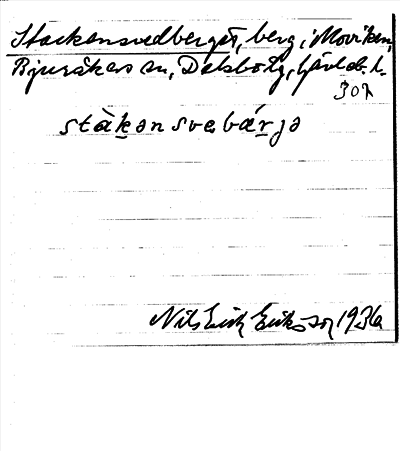 Stackansvedberget, berg, i Moviken,
Bjuråkers sn, Delsbo tg, Gävleb. l.
307
stàkansvebárjə
Nils Erik Eriksson 1936